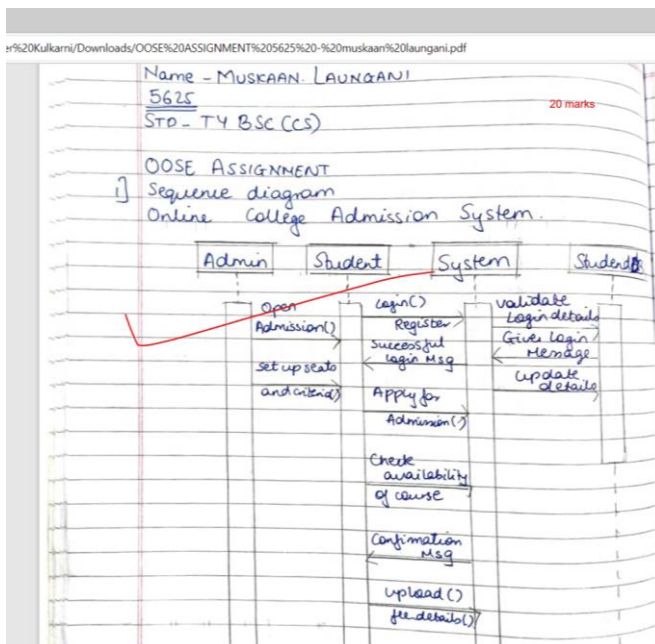 er%20Kulkarni/Downloads/OOSE%20ASSIGNMENT%205625%20-%20muskaan%20laungani.pdf
Name - MUSKAAN. LAUNGANI
5625
20 marks
STD - TY BSC (CS)
OOSE ASSIGNMENT
1] Sequence diagram
Online College Admission System.
Admin
Student
System
Open
Admission()
set up seats
Login()
Register
Successful
login Msg
Apply for
Admission()
Check
availability
of course
Confimation
Msg
upload()
fee details()
validate
Login details
Gives Login
Message
update
details